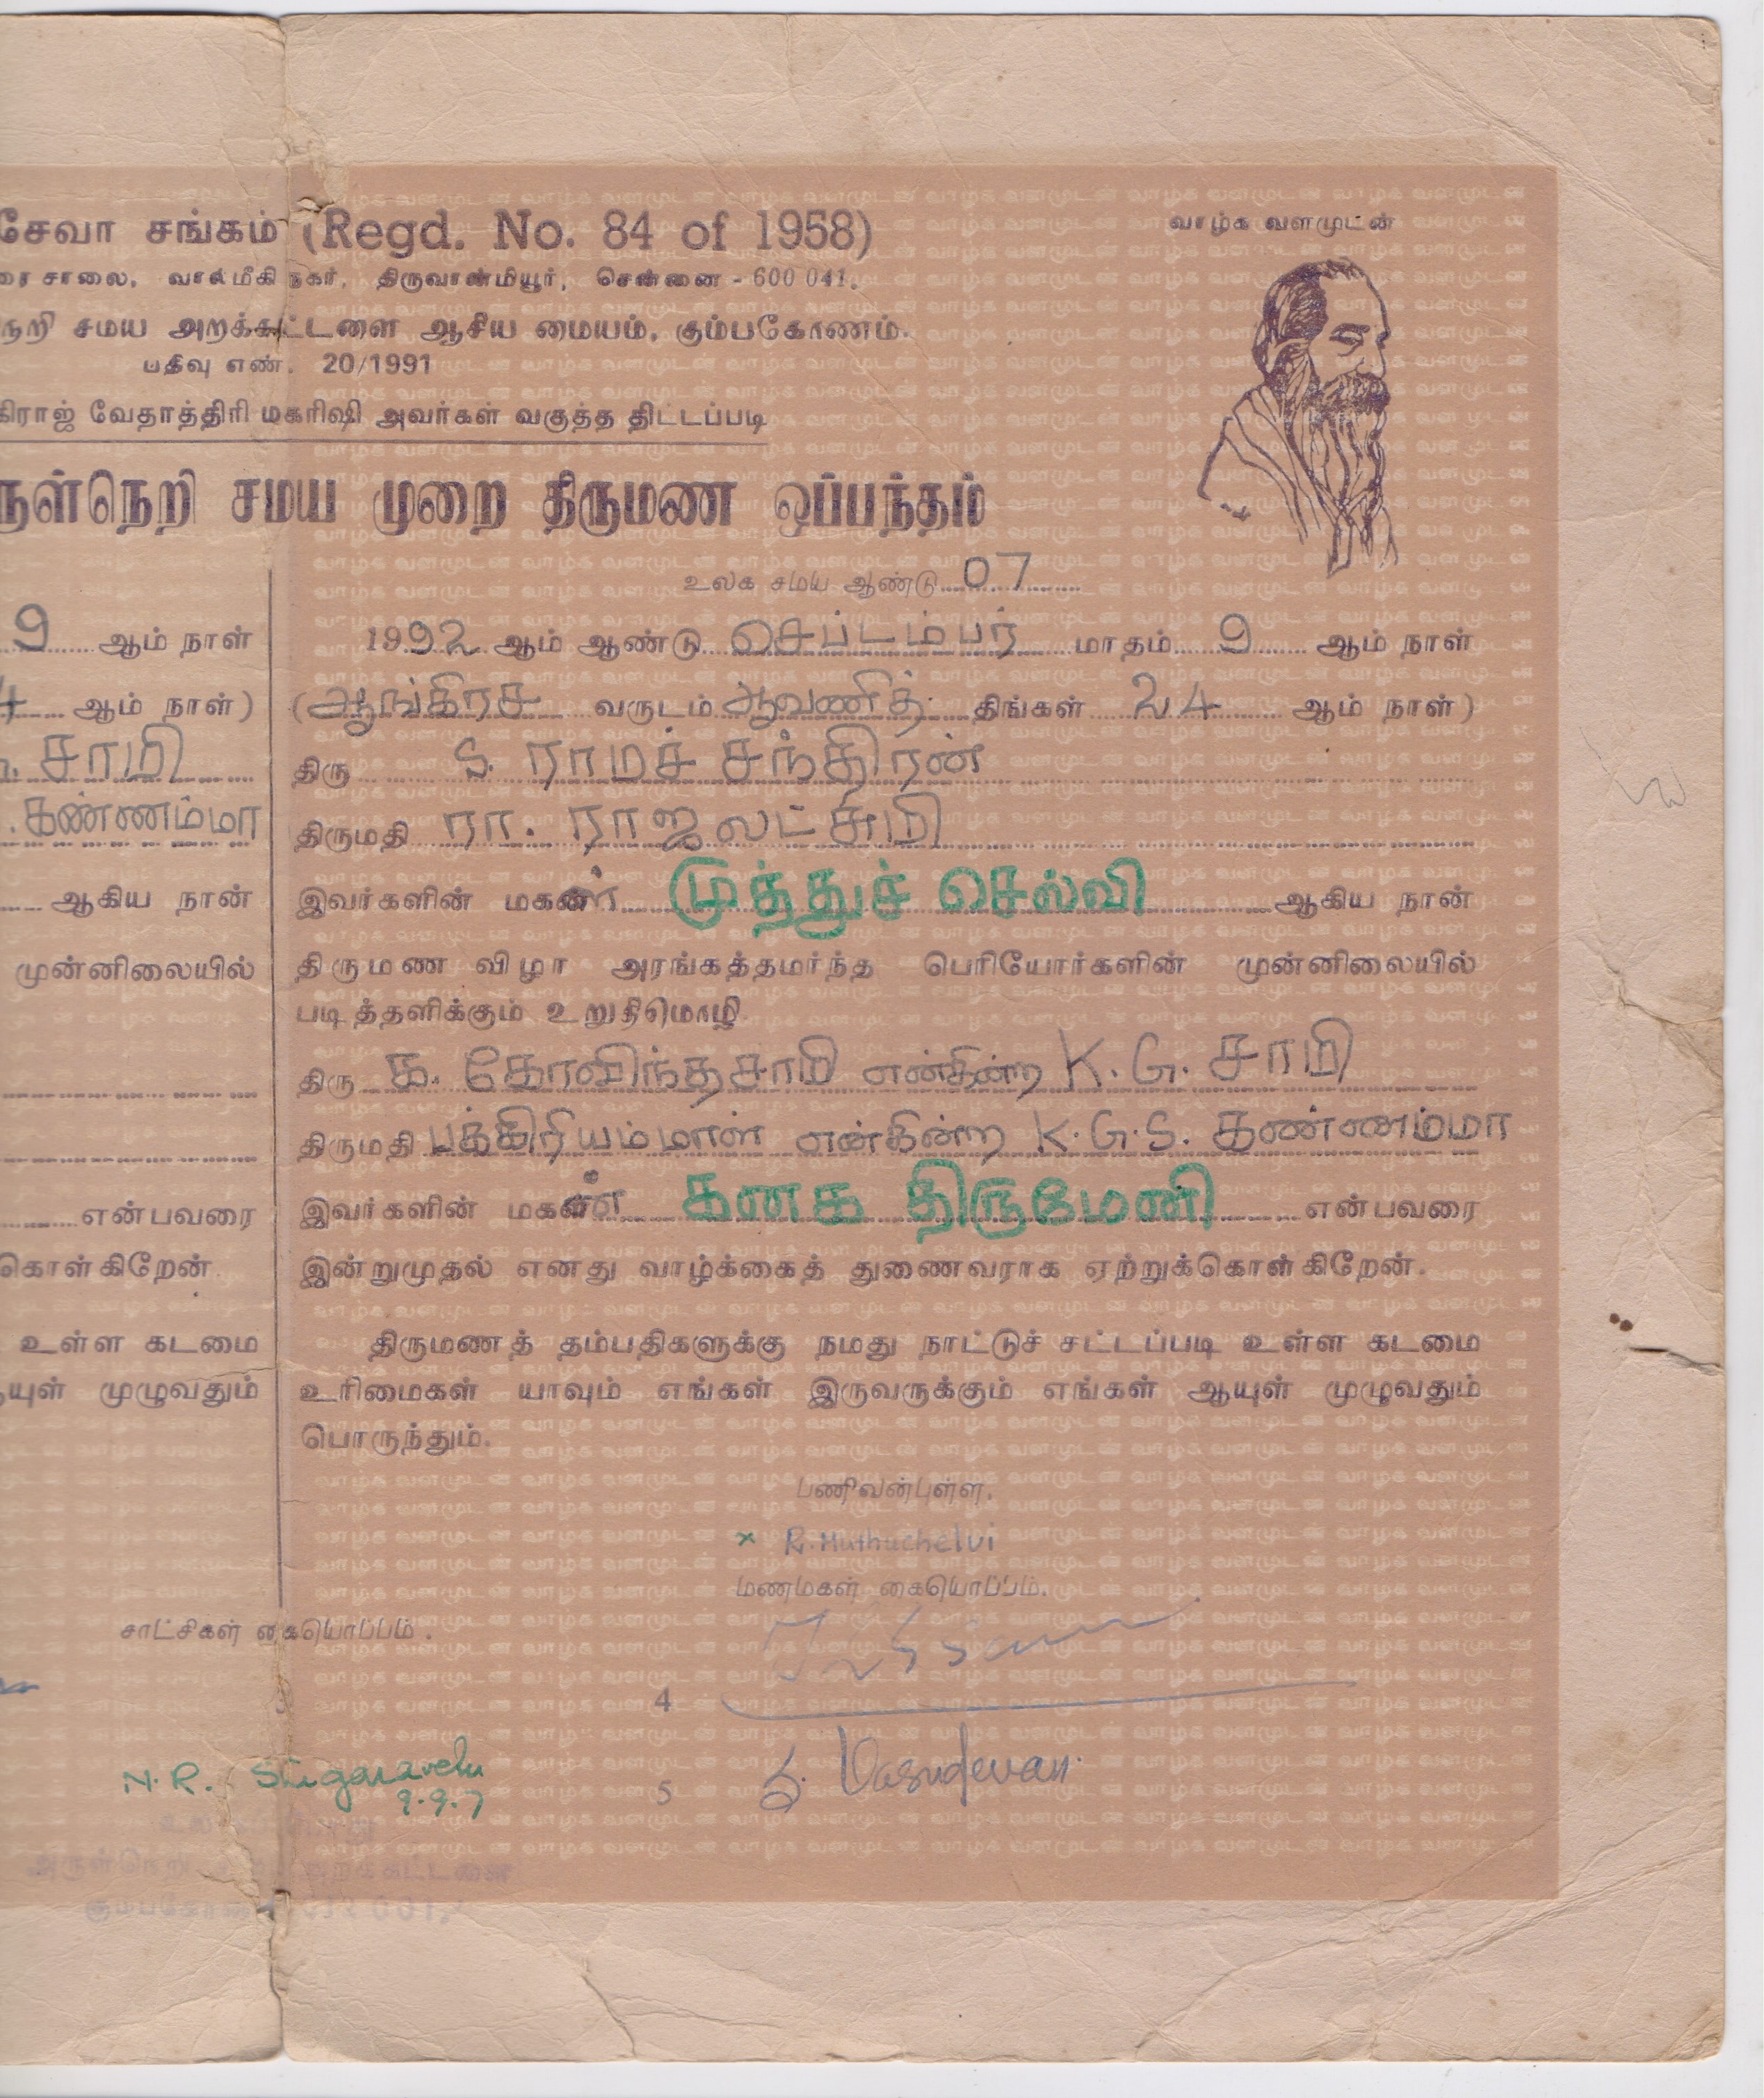 சேவா சங்கம் (Regd. No. 84 of 1958)
வாழ்க வளமுடன்
சாலை, வால்மீகி நகர், திருவான்மியூர், சென்னை - 600 041.
நெறி சமய அறக்கட்டளை ஆசிய மையம், கும்பகோணம்.
பதிவு எண். 20/1991
கிராஜ் வேதாத்திரி மகரிஷி அவர்கள் வகுத்த திட்டப்படி
ருள்நெறி சமய முறை திருமண ஒப்பந்தம்
உலக சமய ஆண்டு 07
9 ஆம் நாள்
4 ஆம் நாள்)
சாமி
கண்ணம்மா
ஆகிய நான்
முன்னிலையில்
என்பவரை
கொள்கிறேன்.
உள்ள கடமை
யுள் முழுவதும்
1992 ஆம் ஆண்டு செப்டம்பர் மாதம் 9 ஆம் நாள்
(ஆங்கிரச வருடம் ஆவணித் திங்கள் 24 ஆம் நாள்)
திரு S. ராமச் சந்திரன்
திருமதி ரா. ராஜலட்சுமி
இவர்களின் மகள் முத்துச் செல்வி ஆகிய நான்
திருமண விழா அரங்கத்தமர்ந்த பெரியோர்களின் முன்னிலையில்
படித்தளிக்கும் உறுதிமொழி
திரு க. கோவிந்தசாமி என்கின்ற K. G. சாமி
திருமதி பக்கிரியம்மாள் என்கின்ற K.G.S. கண்ணம்மா
இவர்களின் மகன் கனக திருமேனி என்பவரை
இன்றுமுதல் எனது வாழ்க்கைத் துணைவராக ஏற்றுக்கொள்கிறேன்.
திருமணத் தம்பதிகளுக்கு நமது நாட்டுச் சட்டப்படி உள்ள கடமை
உரிமைகள் யாவும் எங்கள் இருவருக்கும் எங்கள் ஆயுள் முழுவதும்
பொருந்தும்.
பணிவன்புள்ள,
x R. Muthuchelvi
மணமகள் கையொப்பம்.
சாட்சிகள் கையொப்பம்.
3
4
N. R. Singaravelu
9.9.7
5 S. Vasudevan